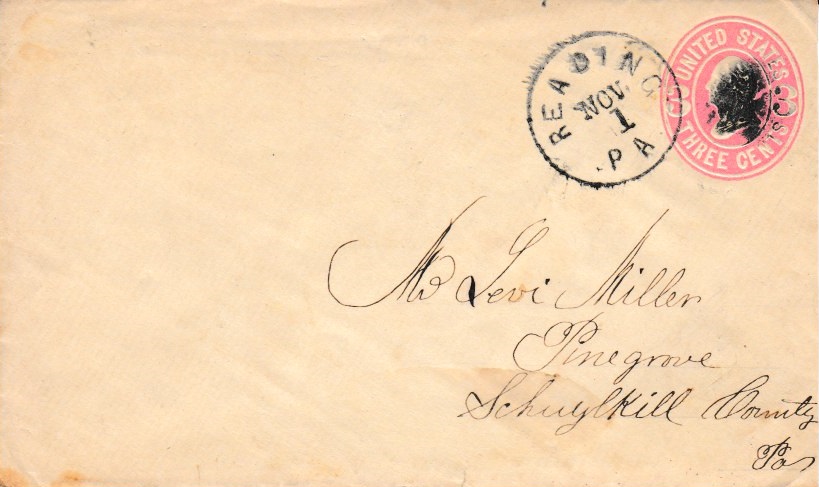 UNITED STATES
3 3
THREE CENTS
READING
NOV
1
PA
Mr Levi Miller
Pinegrove
Schuylkill County
Pa